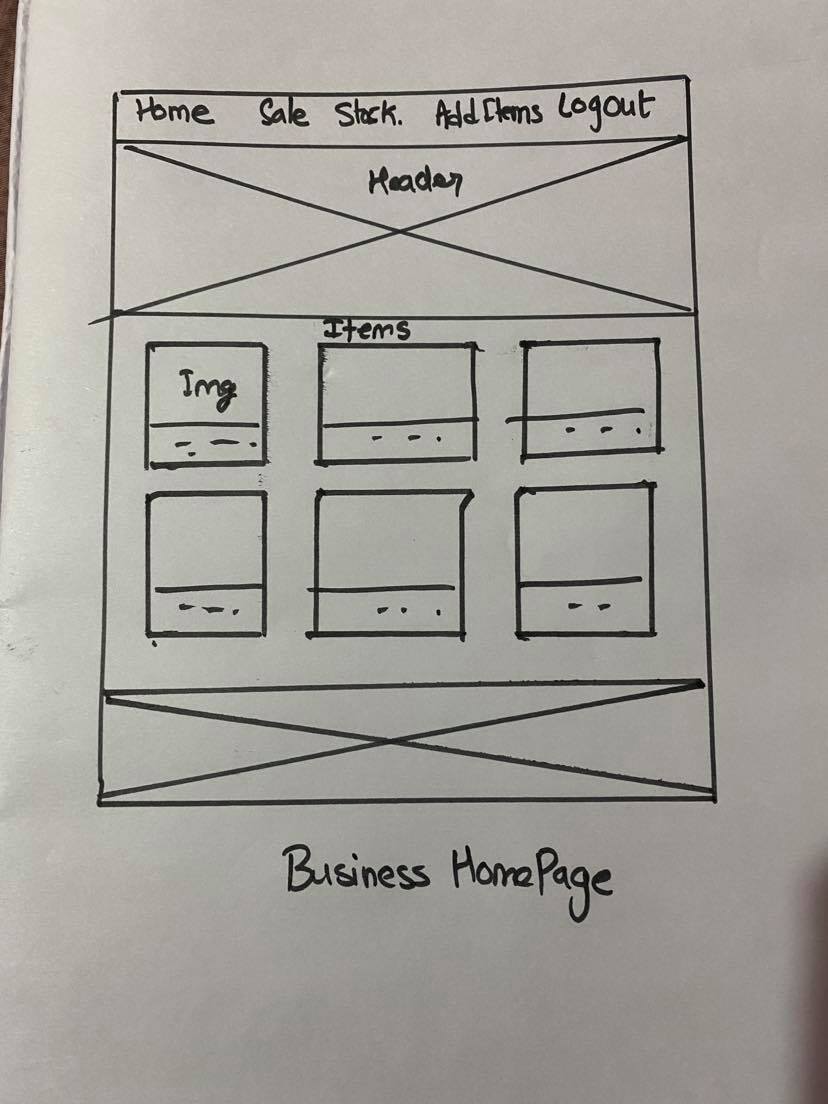 Home Sale Stock. Add Items Logout
Header
Items
Img
Business HomePage